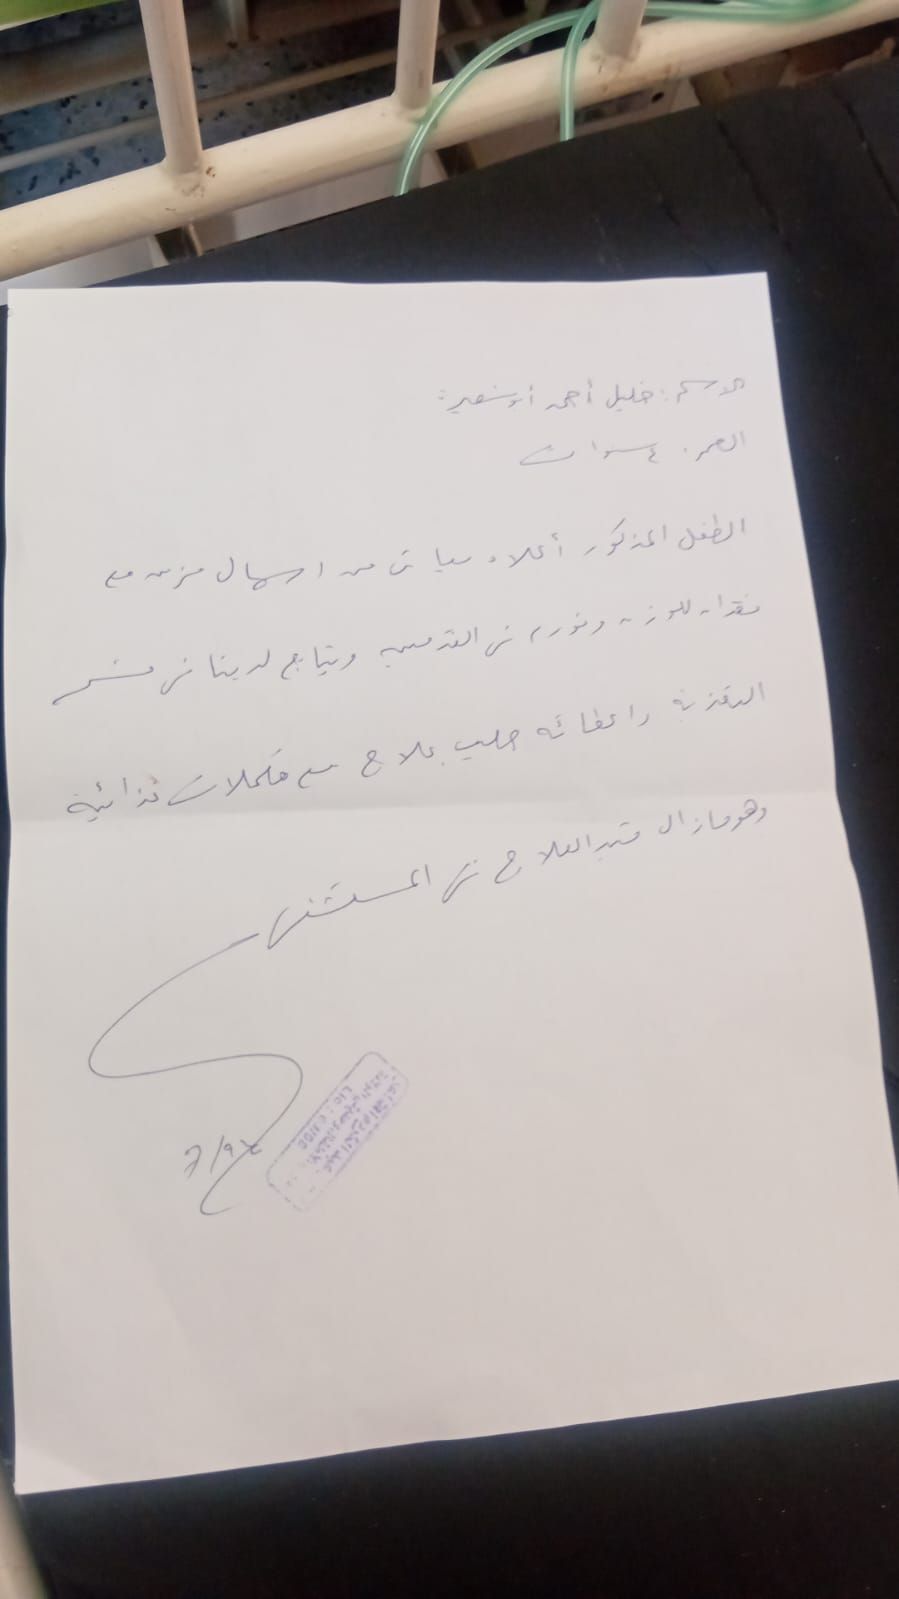 الاسم: خليل أحمد أبو شعير
العمر: ٤ سنوات
الطفل المذكور أعلاه يعاني من اسهال مزمن مع
فقدان للوزن وتورم في القدمين ويتابع لدينا في قسم
التغذية واعطائه حليب علاج مع مكملات غذائية
وهو مازال قيد العلاج في المستشفى